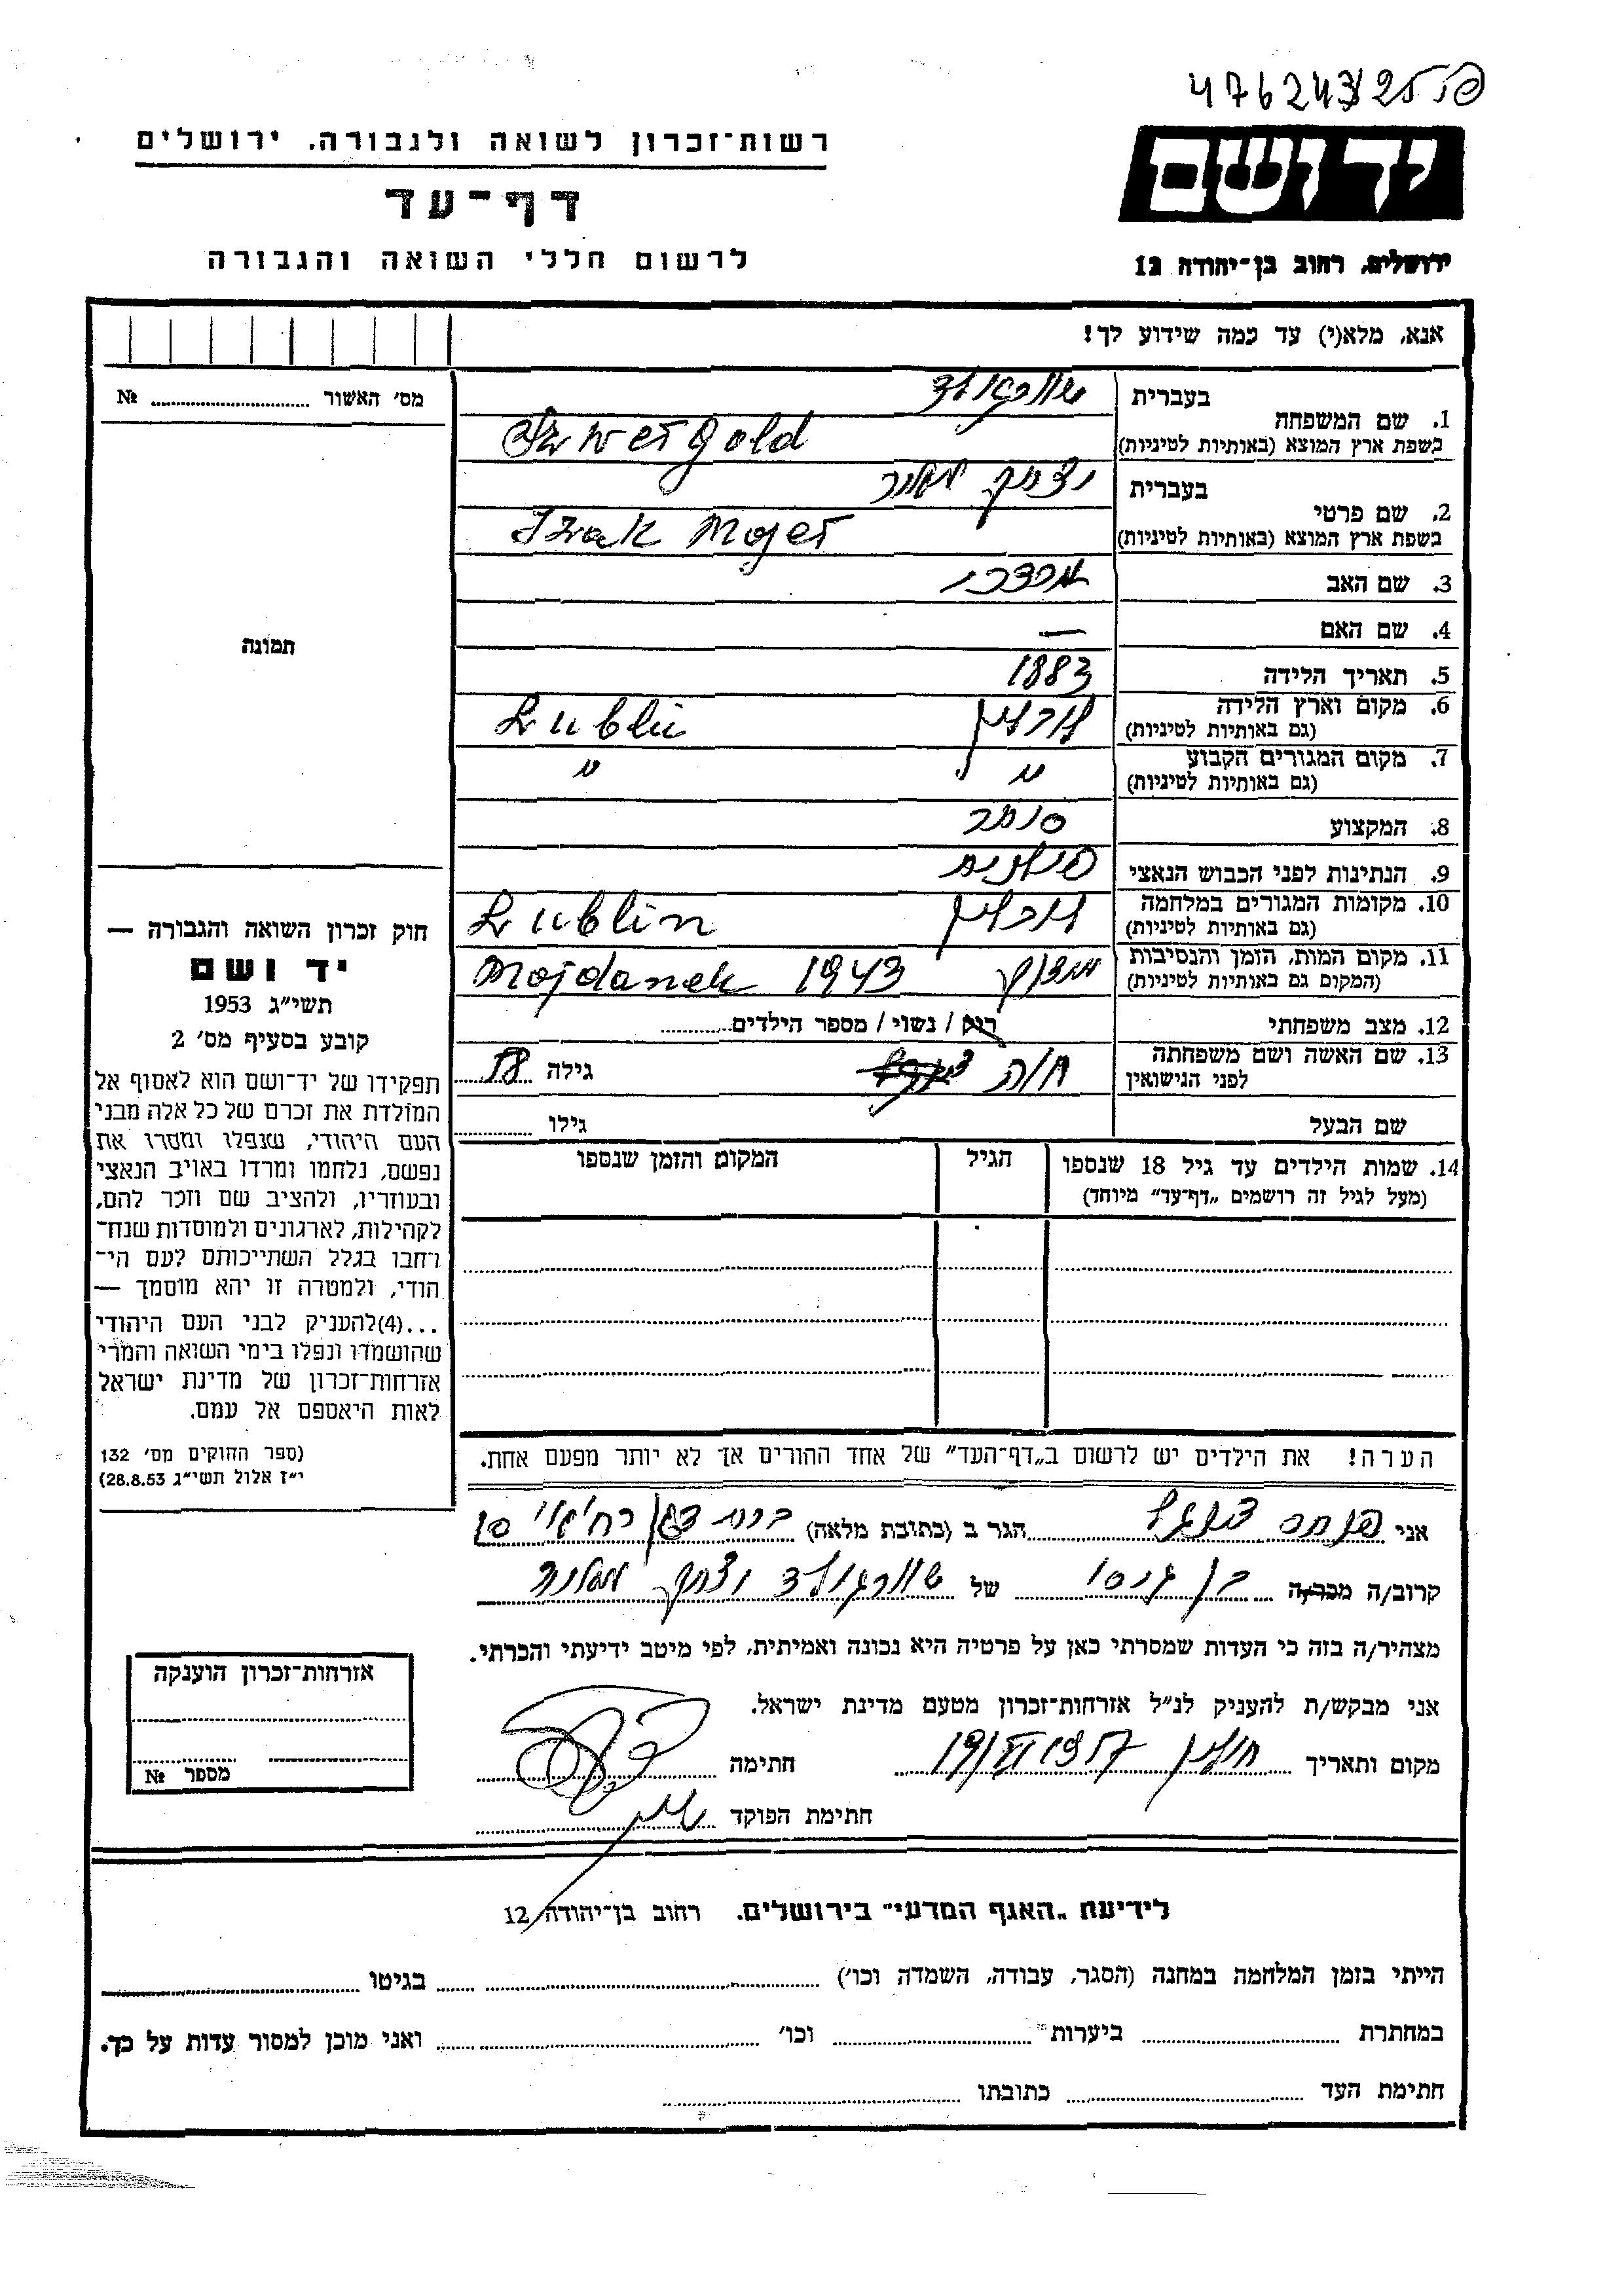 476243/255 פ
רשות־זכרון לשואה ולגבורה. ירושלים
דף־עד
לרשום חללי השואה והגבורה
יד ושם
ירושלים, רחוב בן־יהודה 12
אנא, מלא(י) עד כמה שידוע לך!
מס׳ האשור № 
תמונה
חוק זכרון השואה והגבורה —
יד ושם
תשי״ג 1953
קובע בסעיף מס׳ 2
תפקידו של יד־ושם הוא לאסוף אל
המולדת את זכרם של כל אלה מבני
העם היהודי, שנפלו ומסרו את
נפשם, נלחמו ומרדו באויב הנאצי
ובעוזריו, ולהציב שם וזכר להם,
לקהילות, לארגונים ולמוסדות שנח־
רחבו בגלל השתייכותם לעם הי־
הודי, ולמטרה זו יהא מוסמך —
...(4)להעניק לבני העם היהודי
שהושמדו ונפלו בימי השואה והמרי
אזרחות־זכרון של מדינת ישראל
לאות היאספם אל עמם.
(ספר החוקים מס׳ 132
י״ז אלול תשי״ג 28.8.53)
בעברית שוורגולד
1. שם המשפחה
בשפת ארץ המוצא (באותיות לטיניות) Szwergold
בעברית יצחק מאיר
2. שם פרטי
בשפת ארץ המוצא (באותיות לטיניות) Izak Mojer
3. שם האב מרדכי
4. שם האם —
5. תאריך הלידה 1883
6. מקום וארץ הלידה לובלין Lublin
(גם באותיות לטיניות)
7. מקום המגורים הקבוע " "
(גם באותיות לטיניות)
8. המקצוע סוחר
9. הנתינות לפני הכבוש הנאצי פולנית
10. מקומות המגורים במלחמה לובלין Lublin
(גם באותיות לטיניות)
11. מקום המות, הזמן והנסיבות מידנק 1943 Mojdanek
(המקום גם באותיות לטיניות)
12. מצב משפחתי רוק / נשוי / מספר הילדים
13. שם האשה ושם משפחתה חיה גילה 58
לפני הנישואין
שם הבעל גילו
14. שמות הילדים עד גיל 18 שנספו הגיל המקום והזמן שנספו
(מעל לגיל זה רושמים „דף־עד״ מיוחד)
הערה! את הילדים יש לרשום ב„דף־העד״ של אחד ההורים אך לא יותר מפעם אחת.
אני פנחס הגר ב (כתובת מלאה)
קרוב/ה מכר/ה בן גיסו של שוורגולד יצחק מאיר
מצהיר/ה בזה כי העדות שמסרתי כאן על פרטיה היא נכונה ואמיתית, לפי מיטב ידיעתי והכרתי.
אני מבקש/ת להעניק לנ״ל אזרחות־זכרון מטעם מדינת ישראל.
מקום ותאריך חולון 19/VI 1957 חתימה
חתימת הפוקד
אזרחות־זכרון הוענקה
מספר №
לידיעת „האגף המדעי״ בירושלים. רחוב בן־יהודה 12
הייתי בזמן המלחמה במחנה (הסגר, עבודה, השמדה וכו׳) בגיטו
במחתרת ביערות וכו׳ ואני מוכן למסור עדות על כך.
חתימת העד כתובתו